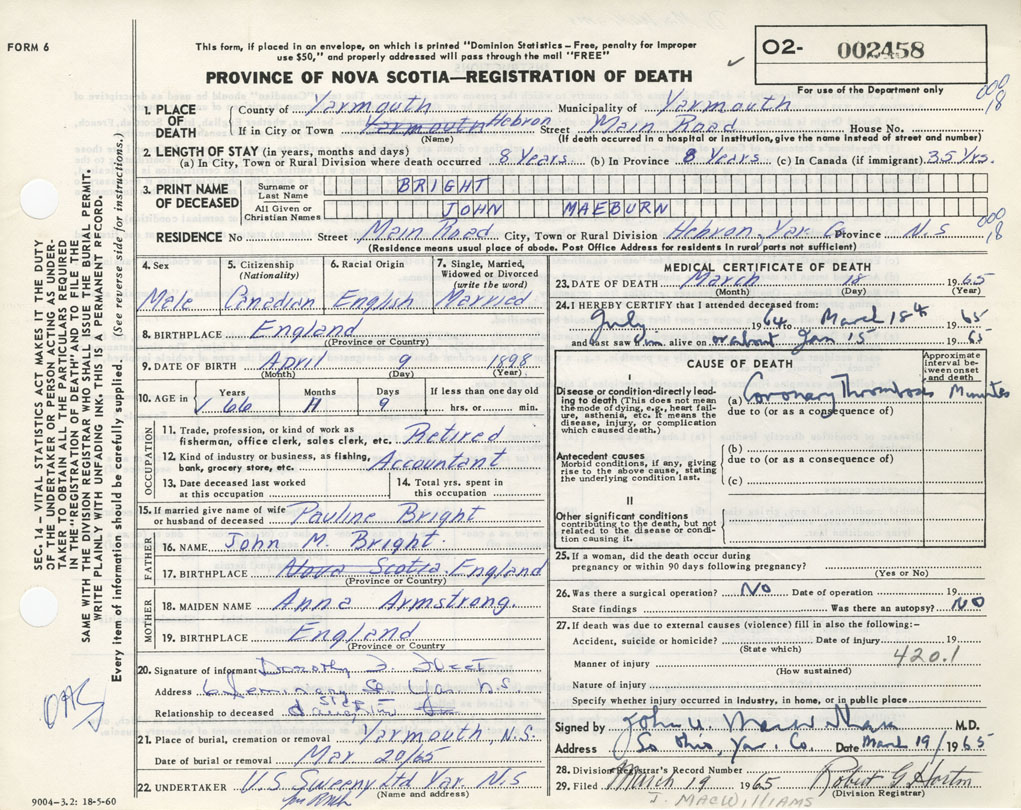 FORM 6
This form, if placed in an envelope, on which is printed "Dominion Statistics – Free, penalty for improper
use $50," and properly addressed will pass through the mail "FREE"
O2- 002458
PROVINCE OF NOVA SCOTIA—REGISTRATION OF DEATH
For use of the Department only
1. PLACE OF DEATH
County of Yarmouth Municipality of Yarmouth
If in City or Town Yarmouth Hebron Street Main Road House No.
(Name) (If death occurred in a hospital or institution, give the name instead of street and number)
2. LENGTH OF STAY (in years, months and days)
(a) In City, Town or Rural Division where death occurred 8 Years (b) In Province 8 Years (c) In Canada (if immigrant) 35 Yrs.
3. PRINT NAME OF DECEASED
Surname or Last Name BRIGHT
All Given or Christian Names JOHN MAEBURN
RESIDENCE No Street Main Road City, Town or Rural Division Hebron, Yar. Co. Province N.S
(Residence means usual place of abode. Post Office Address for residents in rural parts not sufficient)
4. Sex Male
5. Citizenship (Nationality) Canadian
6. Racial Origin English
7. Single, Married, Widowed or Divorced (write the word) Married
8. BIRTHPLACE England
(Province or Country)
9. DATE OF BIRTH April 9 1898
(Month) (Day) (Year)
10. AGE in Years 66 Months 11 Days 9 If less than one day old hrs. or min.
OCCUPATION
11. Trade, profession, or kind of work as
fisherman, office clerk, sales clerk, etc. Retired
12. Kind of industry or business, as fishing,
bank, grocery store, etc. Accountant
13. Date deceased last worked at this occupation
14. Total yrs. spent in this occupation
15. If married give name of wife or husband of deceased Pauline Bright
FATHER
16. NAME John M. Bright
17. BIRTHPLACE Nova Scotia England
(Province or Country)
MOTHER
18. MAIDEN NAME Anna Armstrong.
19. BIRTHPLACE England
(Province or Country
20. Signature of informant Dorothy
Address 6 Seminary St Yar. N.S
Relationship to deceased
21. Place of burial, cremation or removal Yarmouth, N.S.
Date of burial or removal Mar 20/65
22. UNDERTAKER V.S. Sweeny Ltd Yar. N.S
(Name and address)
9004-3.2: 18-5-60
MEDICAL CERTIFICATE OF DEATH
23. DATE OF DEATH March 18 1965
(Month) (Day) (Year)
24. I HEREBY CERTIFY that I attended deceased from:
July 1964 to March 18th 1965
and last saw him alive on or about Jan 15 1965
CAUSE OF DEATH
Approximate interval between onset and death
I
Disease or condition directly leading to death (This does not mean the mode of dying, e.g., heart failure, asthenia, etc. It means the disease, injury, or complication which caused death.)
(a) Coronary Thrombosis Minutes
due to (or as a consequence of)
Antecedent causes
Morbid conditions, if any, giving rise to the above cause, stating the underlying condition last.
(b)
due to (or as a consequence of)
(c)
II
Other significant conditions
contributing to the death, but not related to the disease or condition causing it.
25. If a woman, did the death occur during
pregnancy or within 90 days following pregnancy?
(Yes or No)
26. Was there a surgical operation? NO Date of operation 19
State findings Was there an autopsy? NO
27. If death was due to external causes (violence) fill in also the following:–
Accident, suicide or homicide? Date of injury 19
(State which)
420.1
Manner of injury
(How sustained)
Nature of injury
Specify whether injury occurred in Industry, in home, or in public place
Signed by John M.D.
Address Yar. Co. Date March 19/1965
28. Division Registrar's Record Number
29. Filed March 19 1965 Robert G. Horton
(Division Registrar)
J. MACWILLIAMS
OAS
SEC. 14 – VITAL STATISTICS ACT MAKES IT THE DUTY
OF THE UNDERTAKER OR PERSON ACTING AS UNDER-
TAKER TO OBTAIN ALL THE PARTICULARS REQUIRED
IN THE "REGISTRATION OF DEATH" AND TO FILE THE
SAME WITH THE DIVISION REGISTRAR WHO SHALL ISSUE THE BURIAL PERMIT.
WRITE PLAINLY WITH UNFADING INK. THIS IS A PERMANENT RECORD.
Every item of information should be carefully supplied. (See reverse side for instructions.)